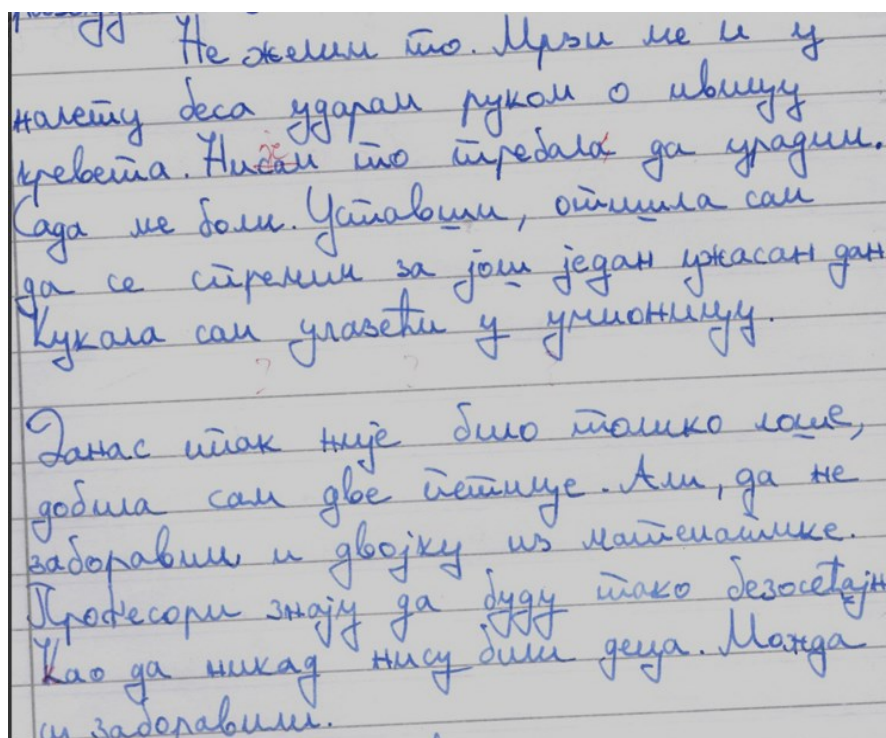 Не желим то. Мрзи ме и у
налету беса ударам руком о ивицу
кревета. Нисам то требала да урадим.
Сада ме боли. Уставши, отишла сам
да се стремим за још један ужасан дан
Кукала сам улазећи у учионицу.
Данас ипак није било толико лоше,
добила сам две петице. Али, да не
заборавим и двојку из математике.
Професори знају да буду тако безосећајн
Као да никад нису били деца. Можда
су заборавили.